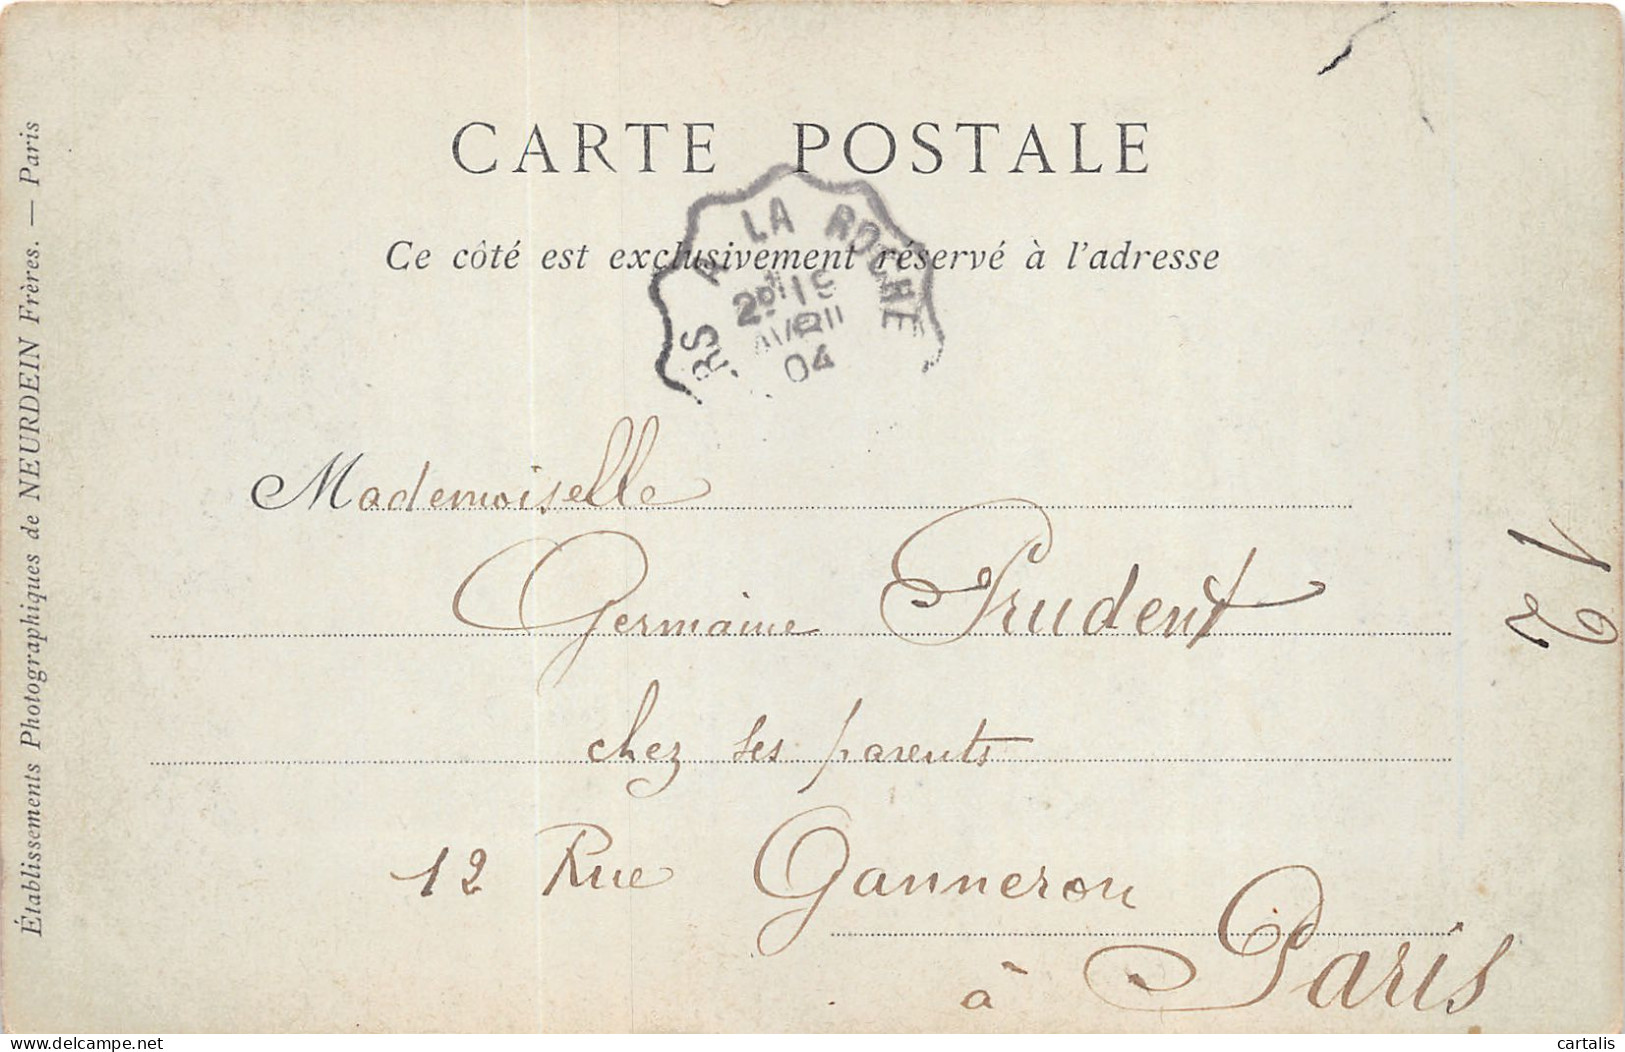 CARTE POSTALE
Ce côté est exclusivement réservé à l'adresse
RS A LA ROCHE
2º 19
AVRIL
04
Mademoiselle
Germaine Prudent
chez ses parents
12 Rue Ganneron
à Paris
12
Établissements Photographiques de NEURDEIN Frères. — Paris
delcampe.net
cartalis